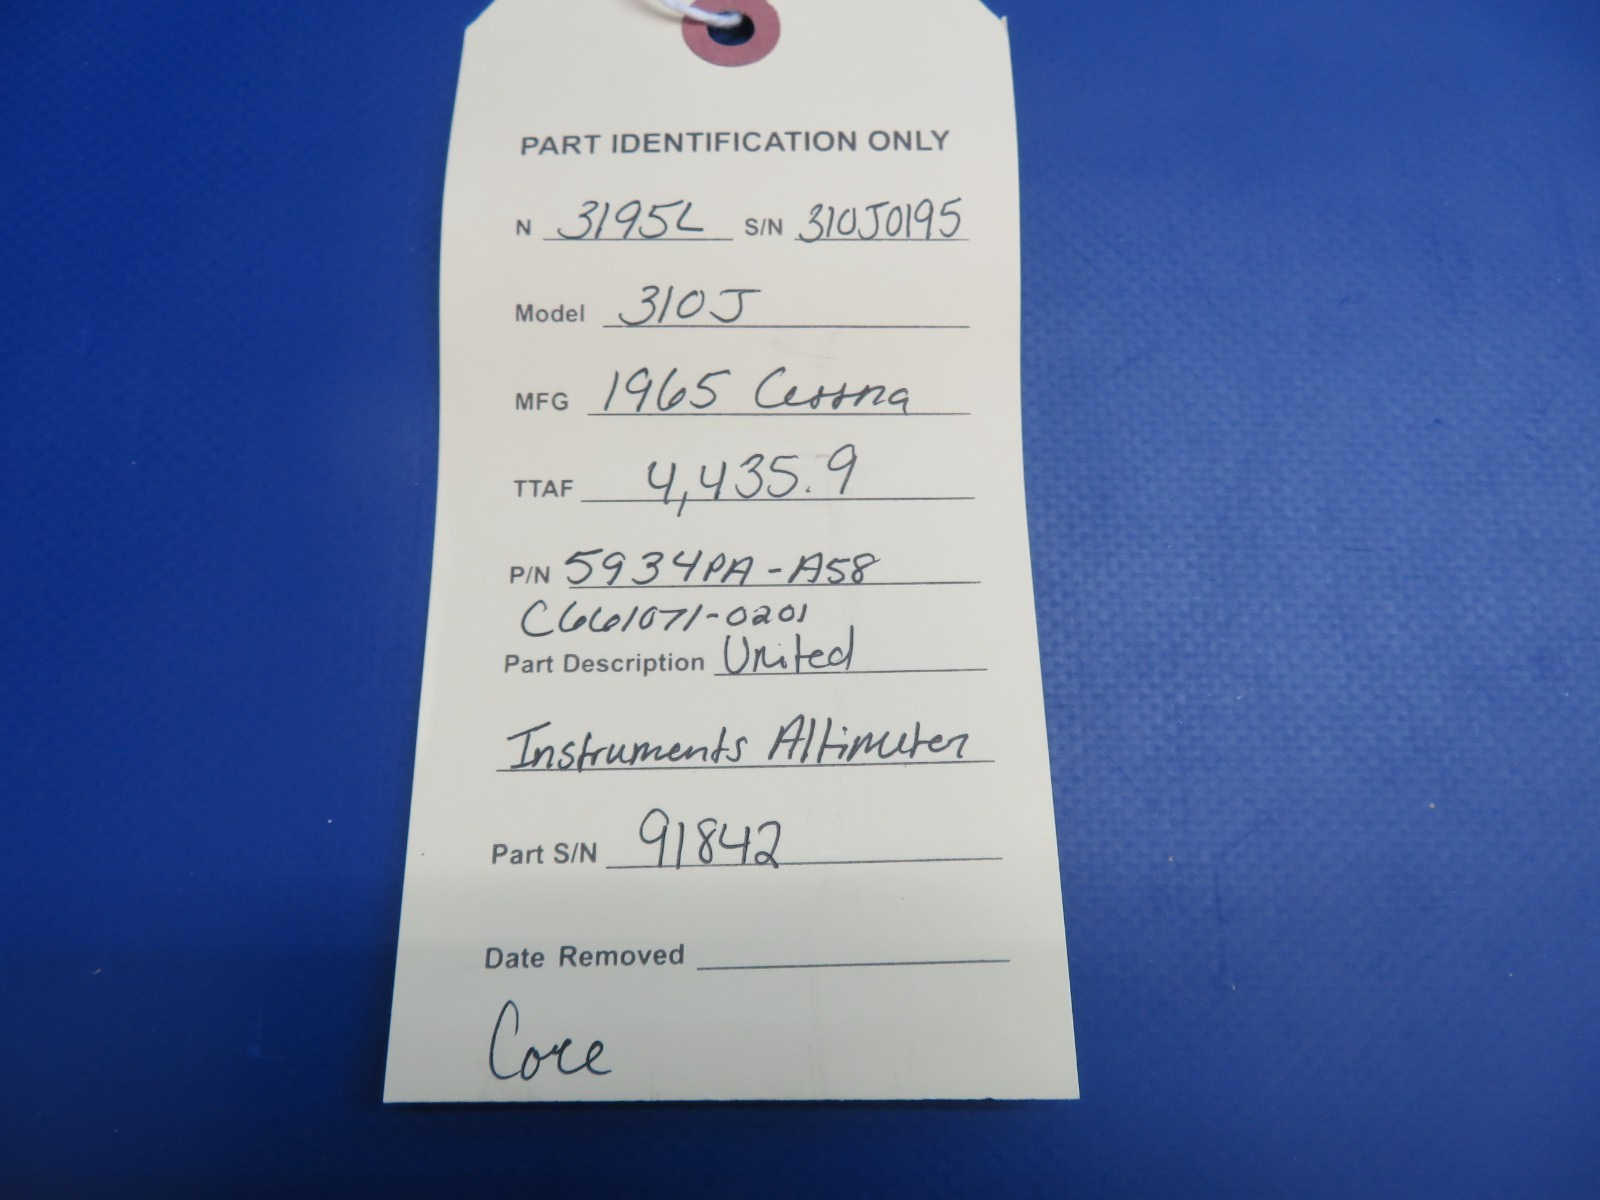 PART IDENTIFICATION ONLY
N 3195L S/N 310J0195
Model 310J
MFG 1965 Cessna
TTAF 4,435.9
P/N 5934PA-A58
C661071-0201
Part Description United
Instruments Altimeter
Part S/N 91842
Date Removed
Core